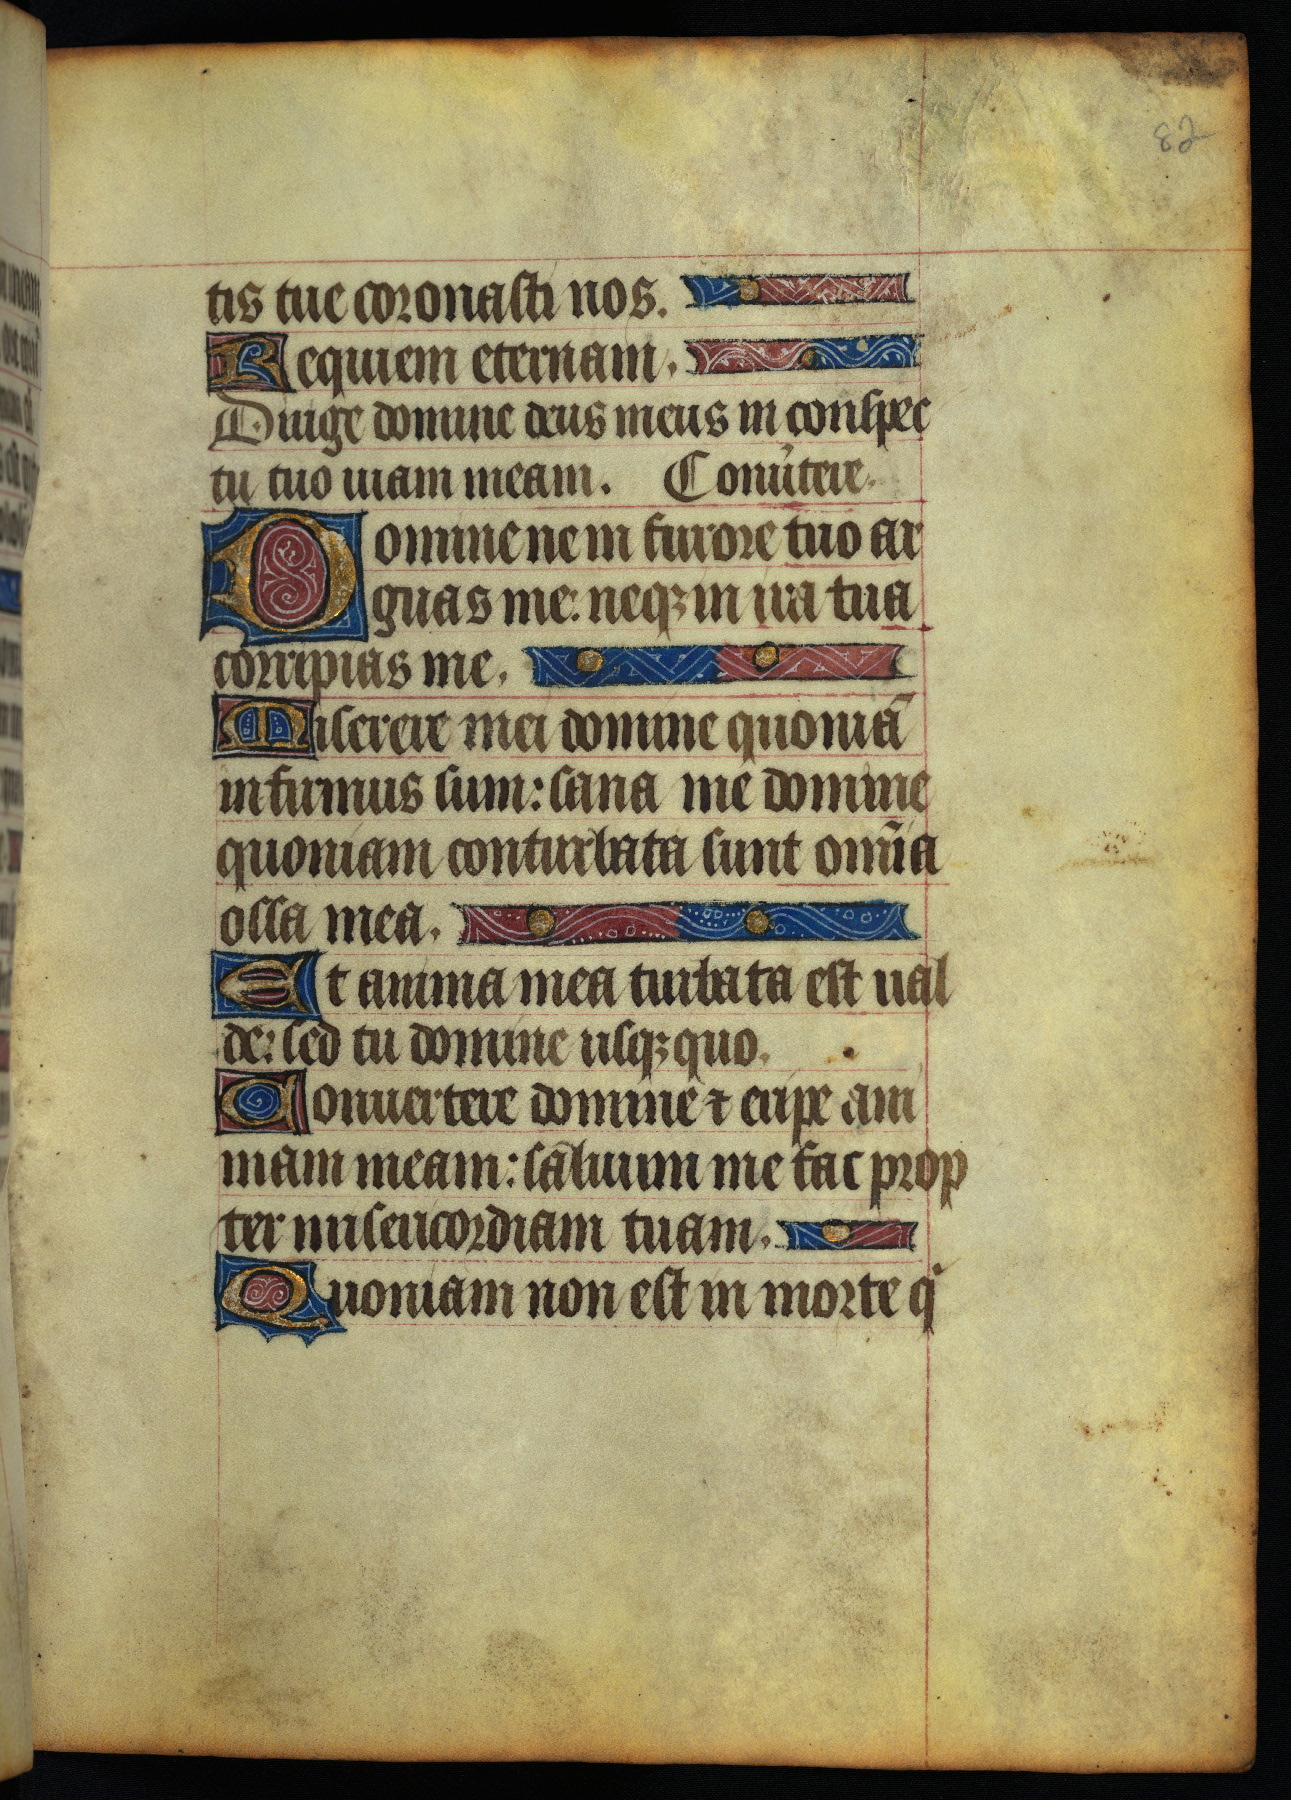 82
tis tue coronasti nos.
Requiem eternam.
Dirige domine deus meus in conspec
tu tuo uiam meam. Conũtere.
Domine ne in furore tuo ar
guas me: neqꝫ in ira tua
corripias me.
Miserere mei domine quoniã
infirmus sum: sana me domine
quoniam conturbata sunt om̃ia
ossa mea.
Et anima mea turbata est ual
de: sed tu domine usqꝫ quo.
Conuertere domine ⁊ eripe ani
mam meam: saluum me fac prop
ter misericordiam tuam.
Quoniam non est in morte qͥ